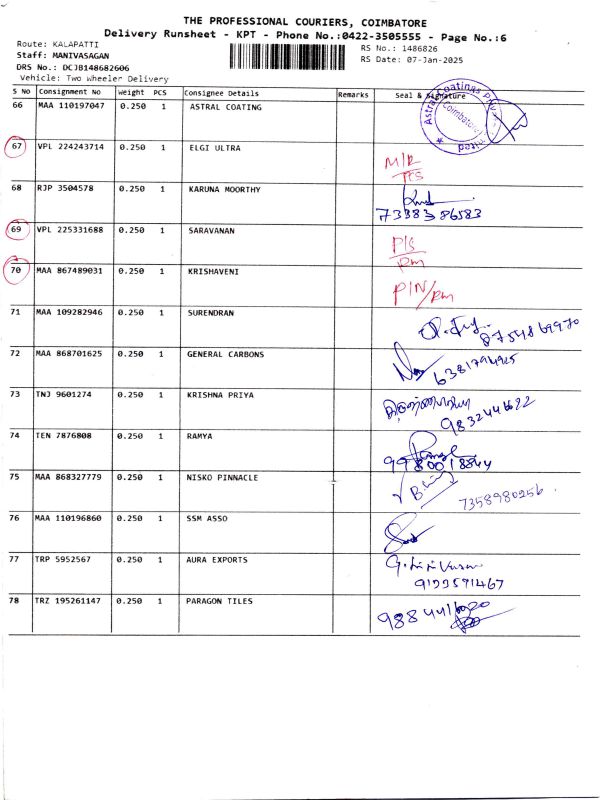 THE PROFESSIONAL COURIERS, COIMBATORE
Delivery Runsheet - KPT - Phone No.:0422-3505555 - Page No.:6
Route: KALAPATTI
RS No.: 1486826
Staff: MANIVASAGAN
RS Date: 07-Jan-2025
DRS No.: DCJB148682606
Vehicle: Two Wheeler Delivery
S No Consignment No Weight PCS Consignee Details Remarks Seal & Signature
66 MAA 110197047 0.250 1 ASTRAL COATING
Astral Coatings Private Limited
Coimbatore
67 VPL 224243714 0.250 1 ELGI ULTRA
68 RJP 3504578 0.250 1 KARUNA MOORTHY
73383 86583
69 VPL 225331688 0.250 1 SARAVANAN
P/S
RM
70 MAA 867489031 0.250 1 KRISHAVENI
PIN/RM
71 MAA 109282946 0.250 1 SURENDRAN
8754869970
72 MAA 868701625 0.250 1 GENERAL CARBONS
6381794925
73 TNJ 9601274 0.250 1 KRISHNA PRIYA
74 TEN 7876808 0.250 1 RAMYA
75 MAA 868327779 0.250 1 NISKO PINNACLE
7358980256
76 MAA 110196860 0.250 1 SSM ASSO
77 TRP 5952567 0.250 1 AURA EXPORTS
78 TRZ 195261147 0.250 1 PARAGON TILES